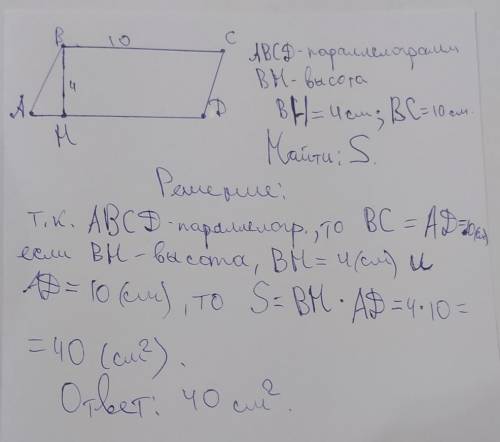 B 10 C
4
A H D
ABCD-параллелограмм
BH-высота
BH=4см; BC=10см.
Найти: S.
Решение:
т.к. ABCD-параллелогр., то BC = AD=10(см)
если BH-высота, BH=4(см) и
AD=10(см), то S=BH·AD=4·10=
=40 (см²).
Ответ: 40 см².